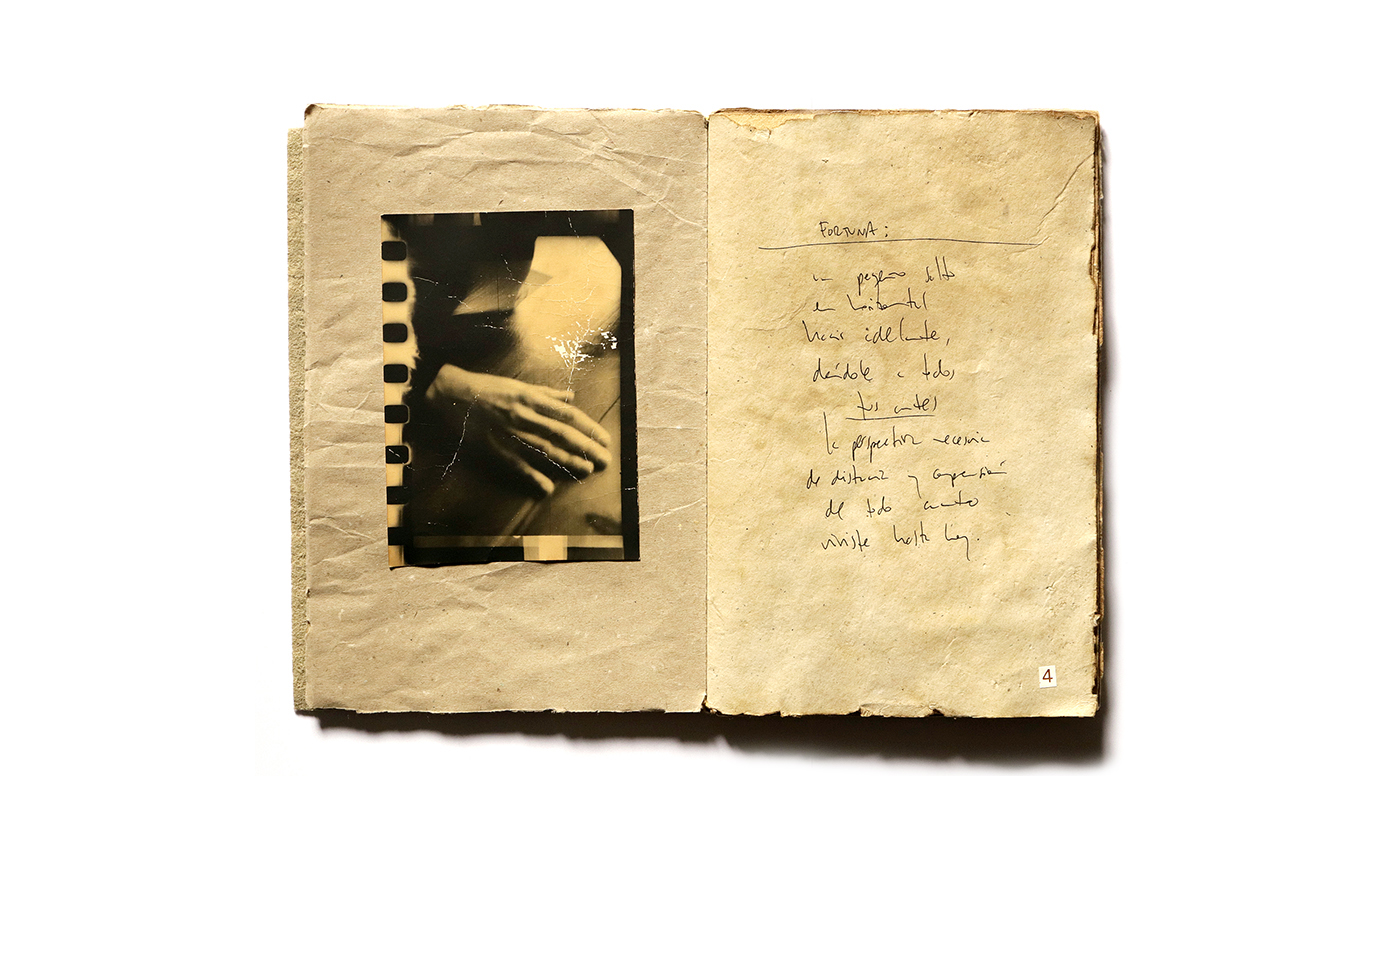 FORTUNA:
un pequeño salto
en horizontal
hacia adelante,
dándole a todos
tus antes
la perspectiva necesaria
de distancia y comprensión
de todo cuanto
viviste hasta hoy.
4